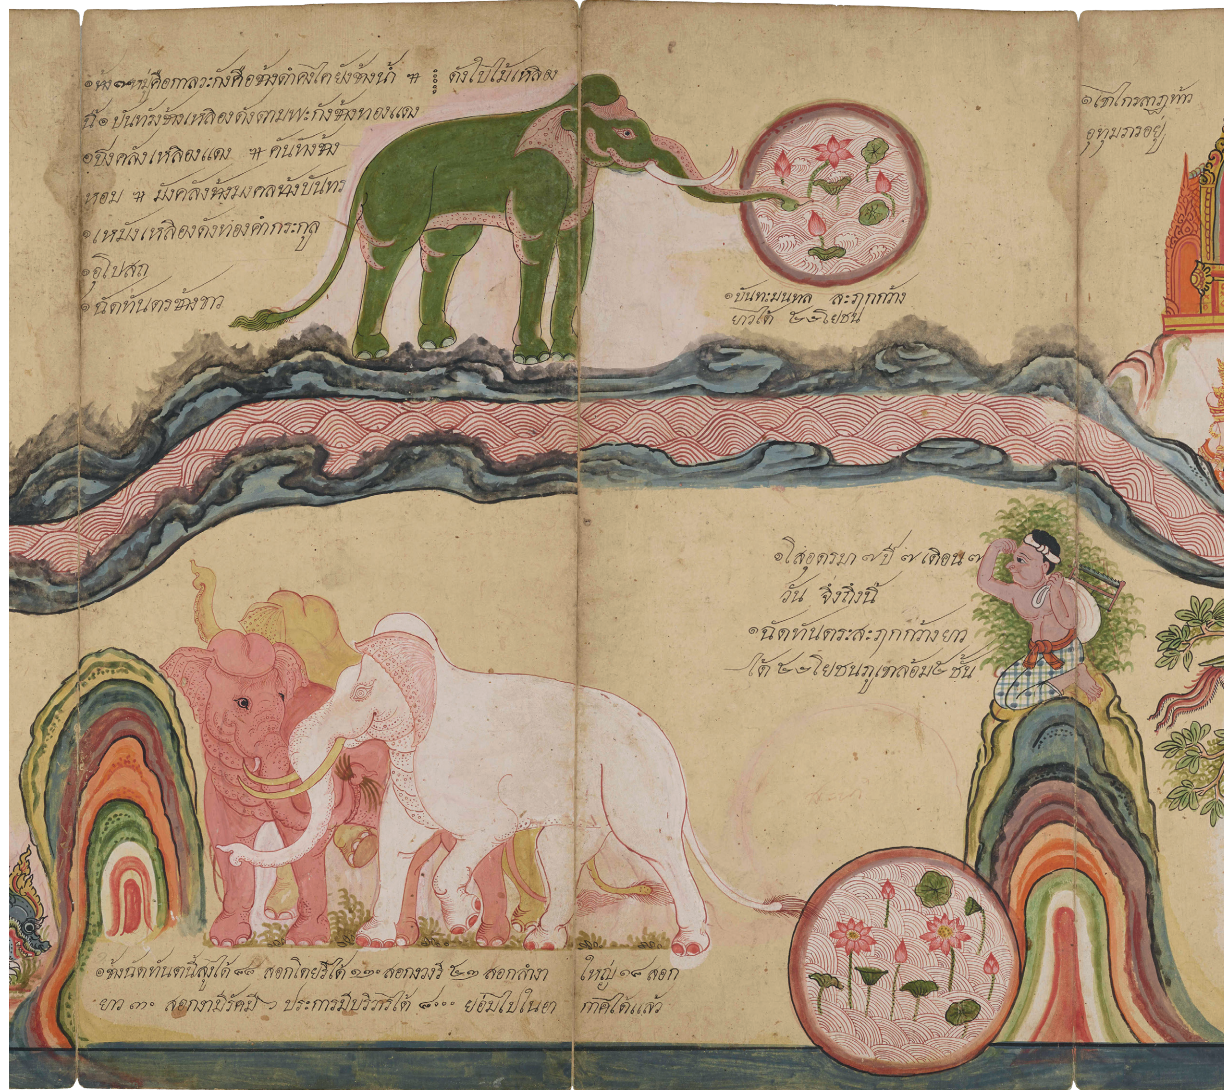 ๏ ช้าง ๓ หมู่คือกาลวะกังคือช้างดำคงไคยังช้างน้ำ ฯ ดังใบไม้เหลือง
นี ๏ บันทรังช้างเหลืองดังตามพะกังช้างทองแดง
๏ ปิงคลังเหลืองแดง ฯ คันทังช้าง
หอม ฯ มังคลังช้างมงคลช้างบันทร
๏ เหมังเหลืองดังทองคำกระกูล
๏ อุโปสถ
๏ ฉัดทันตรช้างขาว
๏ บันทะมนทล สะฦกกว้าง
ยาวได้ ๕๐ โยชน
๏ เขาไกรลาฎท้าว
อุทุมภรอยู่
๏ โสอุดรมา ๗ ปี ๗ เดือน ๗
วัน จึ่งถึงนี้
๏ ฉัดทันตระสะฦกกว้างยาว
ได้ ๕๐ โยชนภูเขาล้อม ๕ ชั้น
๏ ช้างฉัดทันตนี้สูงได้ ๘๘ สอกโดยรีได้ ๑๒๐ สอกงวงรี ๕๑ สอกลำงา ใหญ่ ๑๕ สอก
ยาว ๓๐ สอกงามีรัศมี ๖ ประการมีบริวารได้ ๘๐๐๐ ย่อมไปในอากาศได้แล้ว